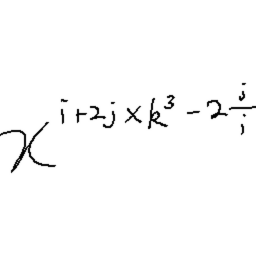 x^{i+2j×k^3-2\frac{j}{i}}